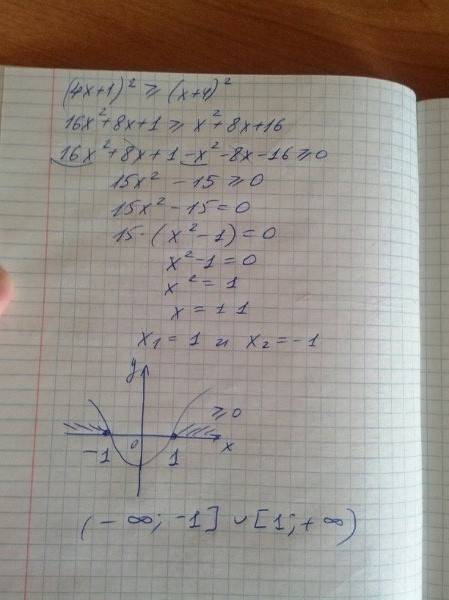 (4x+1)² ≥ (x+4)²
16x²+8x+1 ≥ x²+8x+16
16x²+8x+1-x²-8x-16 ≥ 0
15x² - 15 ≥ 0
15x² - 15 = 0
15·(x²-1) = 0
x²-1 = 0
x² = 1
x = ± 1
x₁ = 1 и x₂ = -1
y
≥0
0
x
-1
1
(-∞; -1] ∪ [1; +∞)